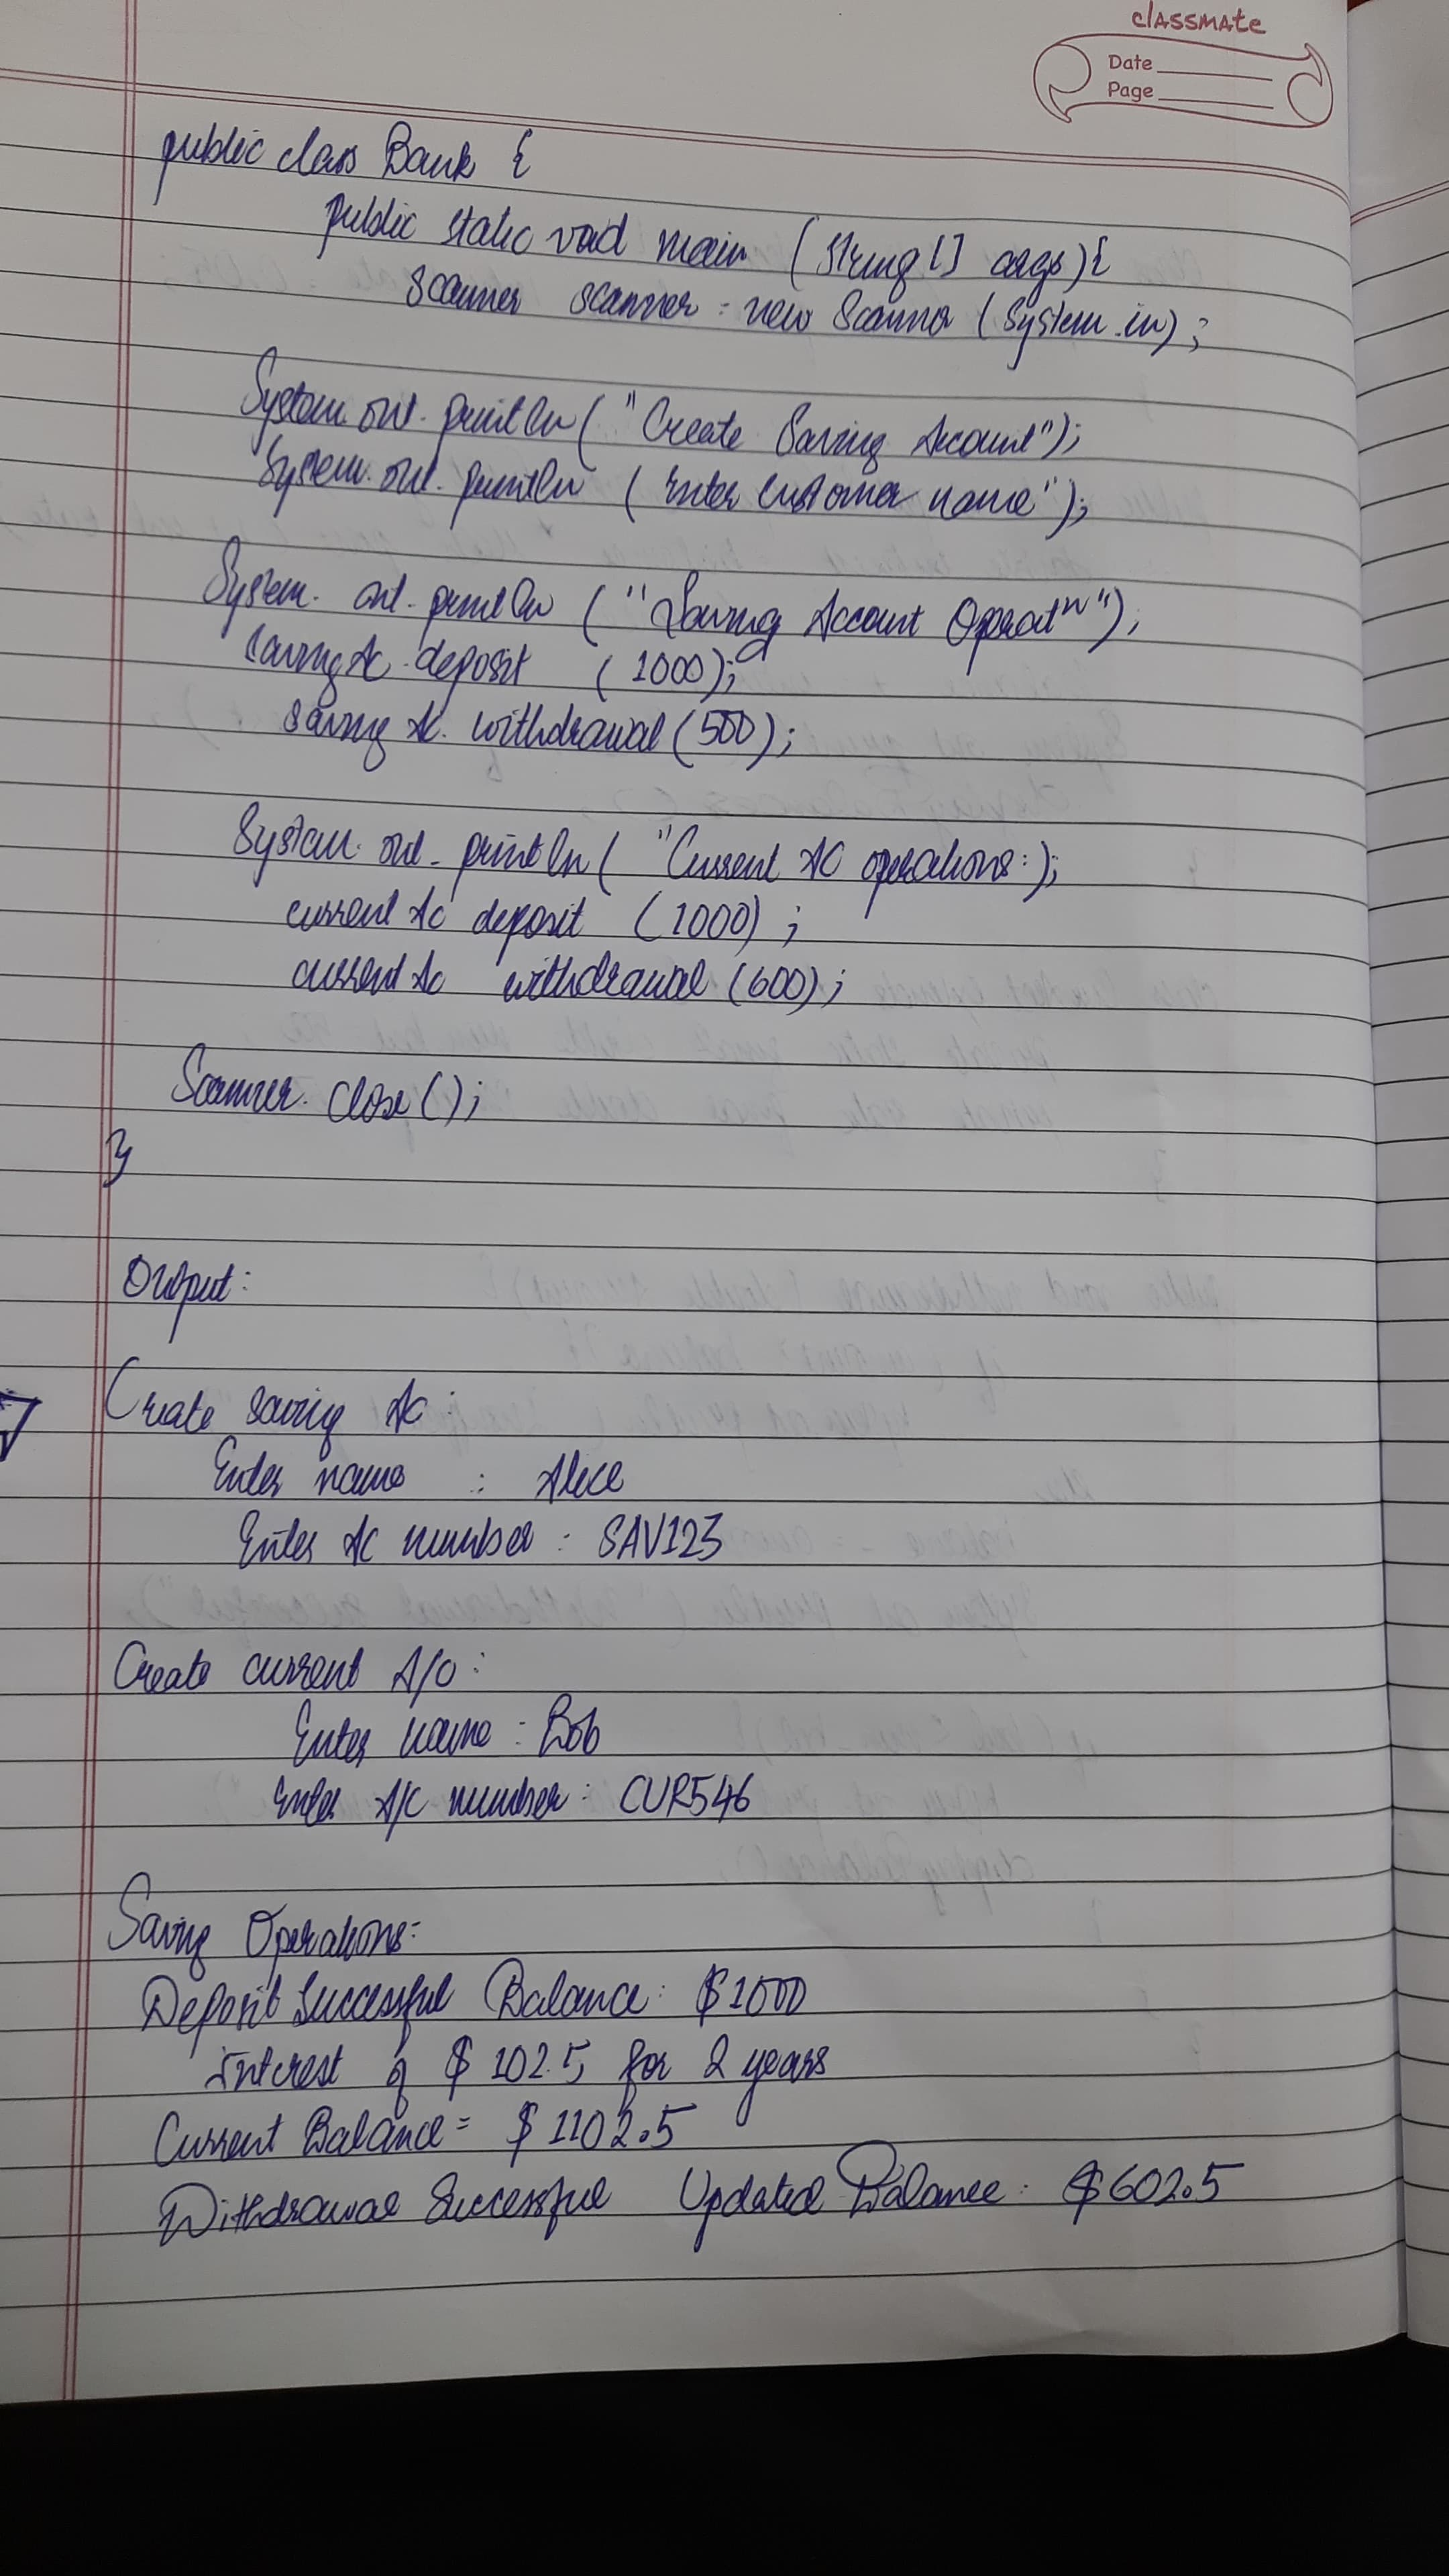 classmate
Date
Page
public class Bank {
public static void main (String [] args) {
Scanner scanner = new Scanner (System.in);
System.out.println ("Create Saving Account");
System.out.println (Enter Customer name");
System.out.println ("Saving Account Operatn");
Saving Ac.deposit (1000);
Saving Ac.withdrawal (500);
System.out.println ("Current AC operations:);
current Ac deposit (1000);
current Ac withdrawal (600);
Scanner.close();
}
Output:
Create Saving Ac:
Enter name : Alice
Enter Ac number : SAV123
Create current A/C :
Enter name : Bob
Enter A/C number : CUR546
Saving Operations:
Deposit Successful Balance: $1000
Interest of $ 102.5 for 2 years
Current Balance = $ 1102.5
Withdrawal Successful Updated Balance: $602.5